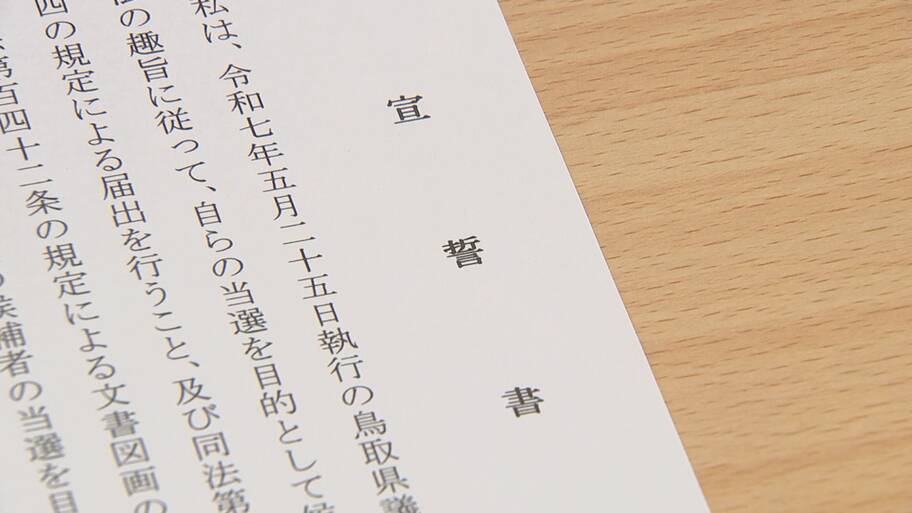 宣誓書
私は、令和七年五月二十五日執行の鳥取県議
の趣旨に従って、自らの当選を目的として候
四の規定による届出を行うこと、及び同法第
第百四十二条の規定による文書図画の
候補者の当選を目